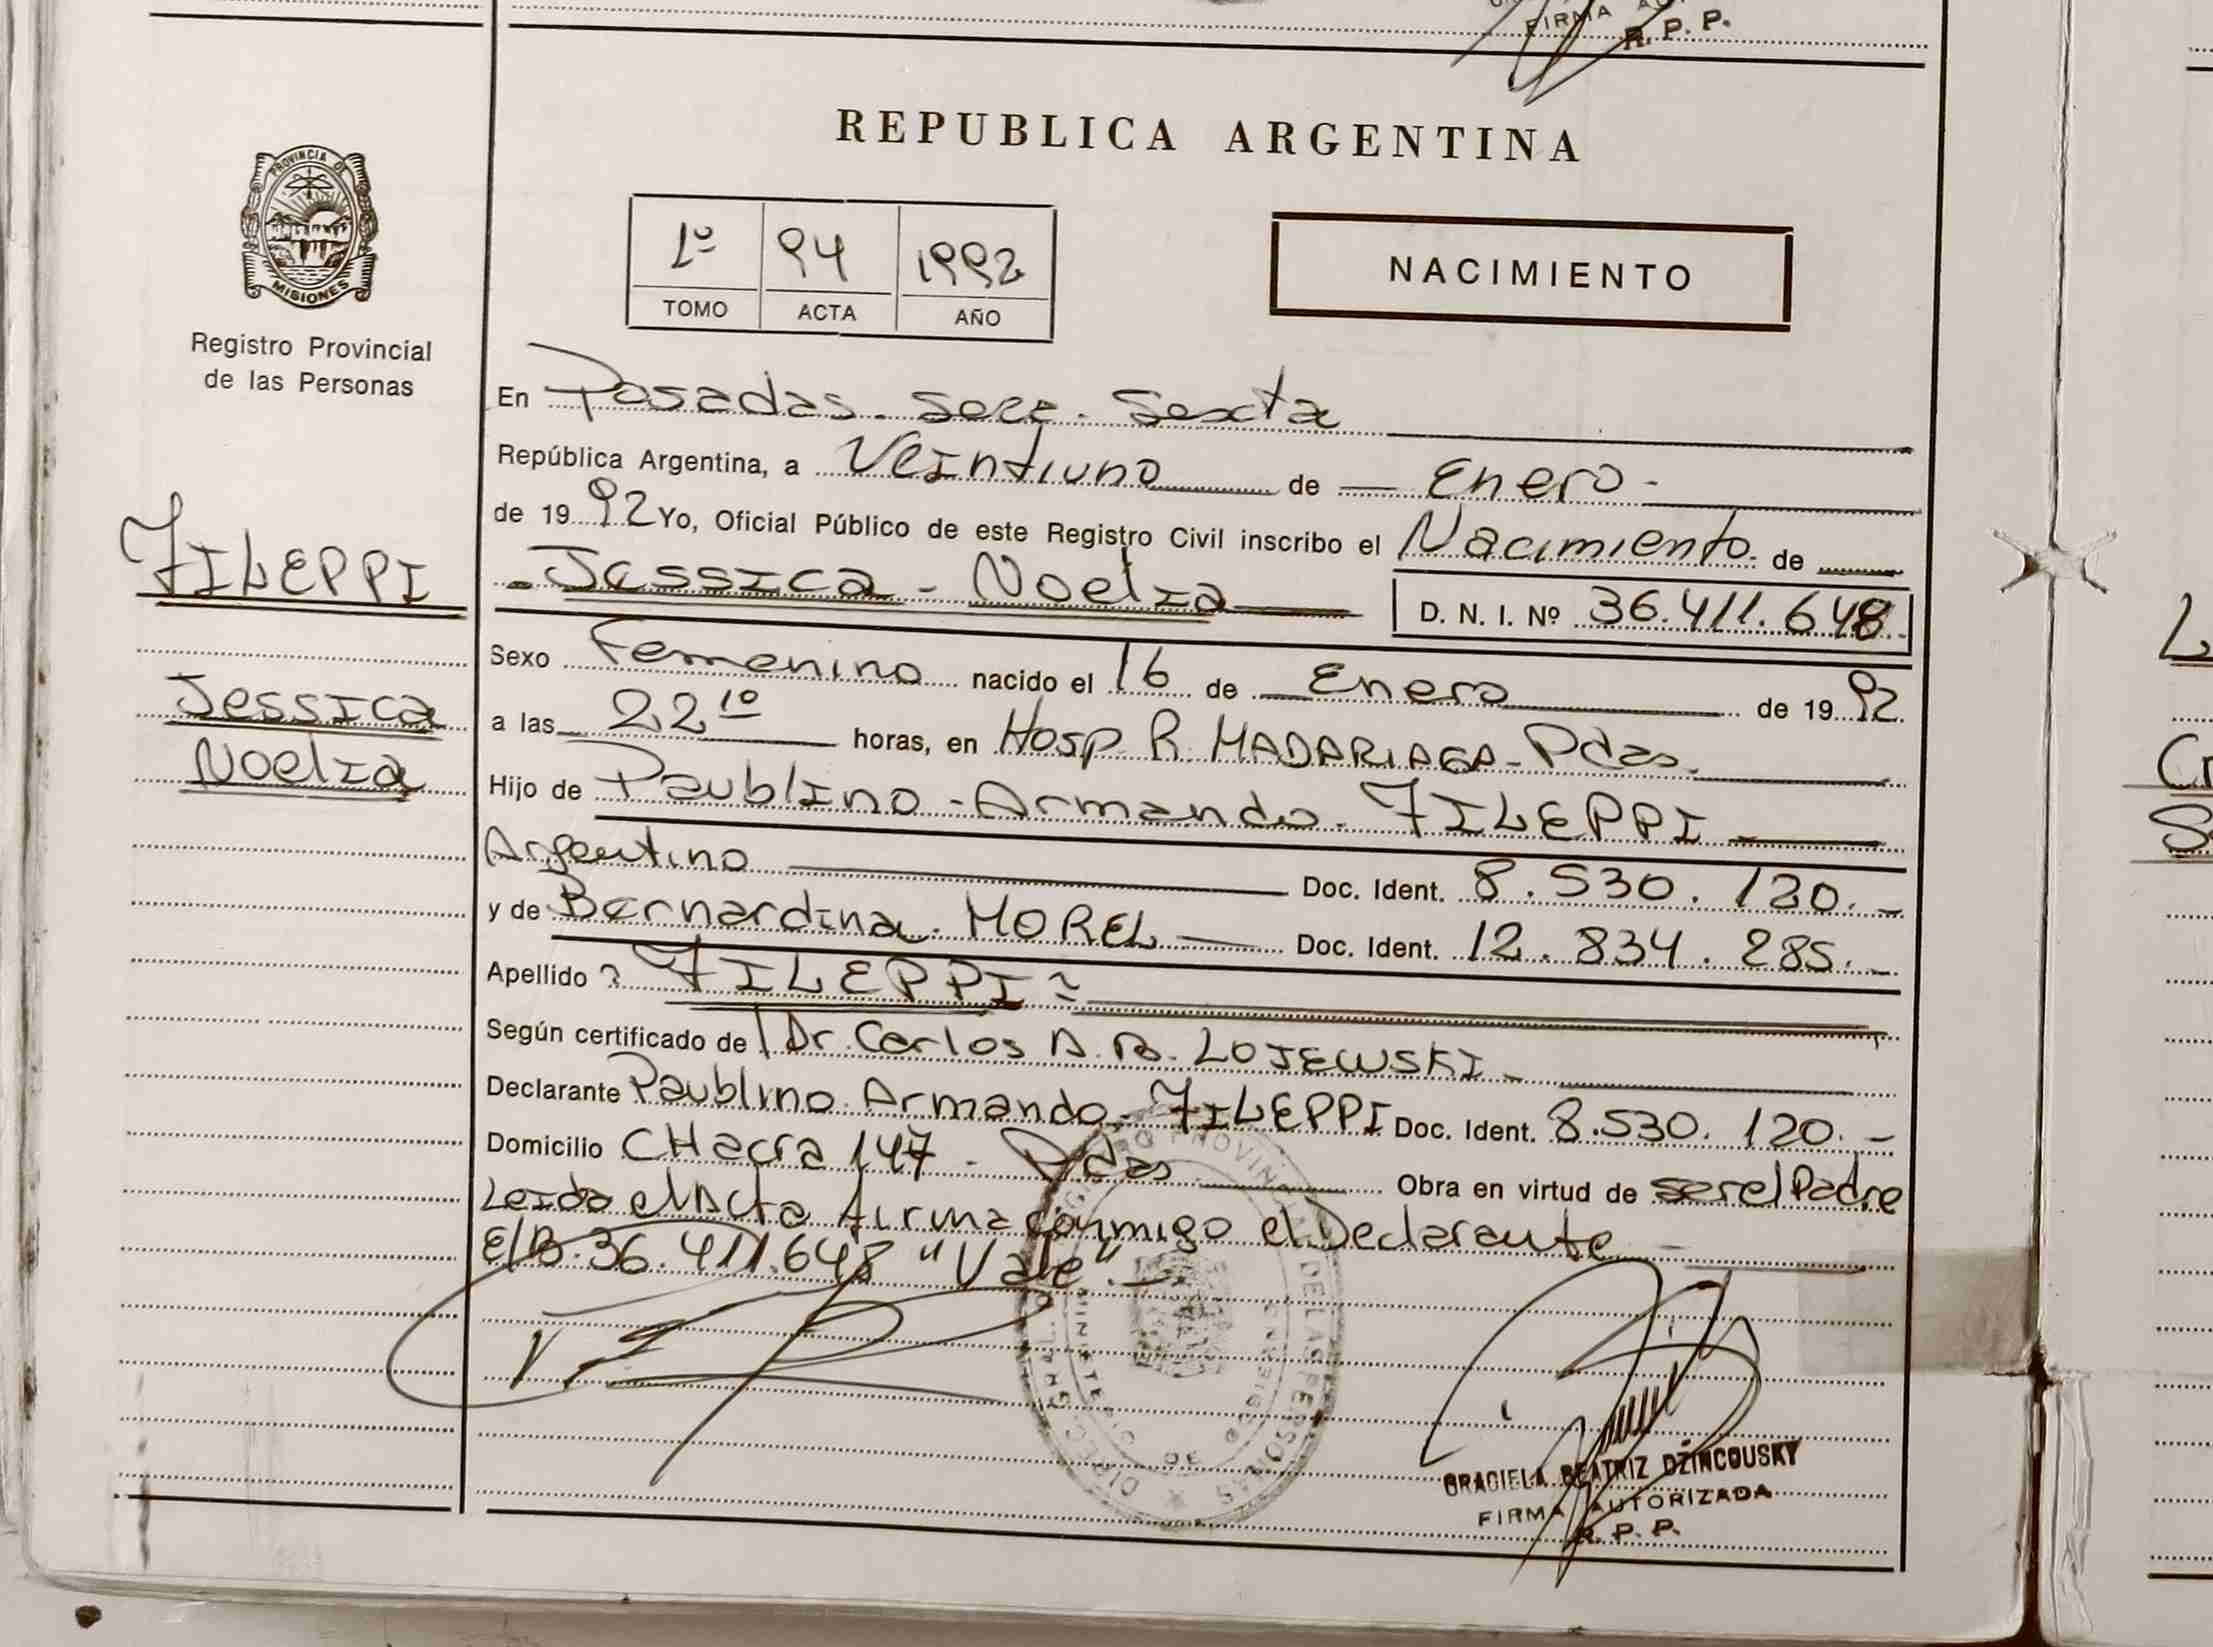 FIRMA
R. P. P.
PROVINCIA DE
MISIONES
Registro Provincial
de las Personas
FILEPPI
Jessica
Noelia
REPUBLICA ARGENTINA
1º 94 1992
TOMO ACTA AÑO
NACIMIENTO
En Posadas. Secc. Sexta
República Argentina, a Veintiuno de Enero -
de 1992 Yo, Oficial Público de este Registro Civil inscribo el Nacimiento de
- Jessica - Noelia D. N. I. Nº 36.411.648.
Sexo Femenino nacido el 16 de Enero de 1992
a las 22 10 horas, en Hosp R. MADARIAGA - Pdas.
Hijo de Paublino - Armando. FILEPPI
Argentino Doc. Ident. 8.530.120.-
y de Bernardina. MOREL Doc. Ident. 12.834.285.-
Apellido FILEPPI
Según certificado de Dr. Carlos A. B. LOJEWSKI -
Declarante Paublino Armando. FILEPPI Doc. Ident. 8.530.120.-
Domicilio CHacra 147 - Pdas Obra en virtud de ser el Padre
Leido el Acta firma conmigo el Declarante
E/B. 36.411.648 "Vale".-
DIREC. GRAL. REGISTRO PROVINCIAL DE LAS PERSONAS
MINISTERIO DE GOBIERNO
GRACIELA BEATRIZ DZINCOUSKY
FIRMA AUTORIZADA
R. P. P.